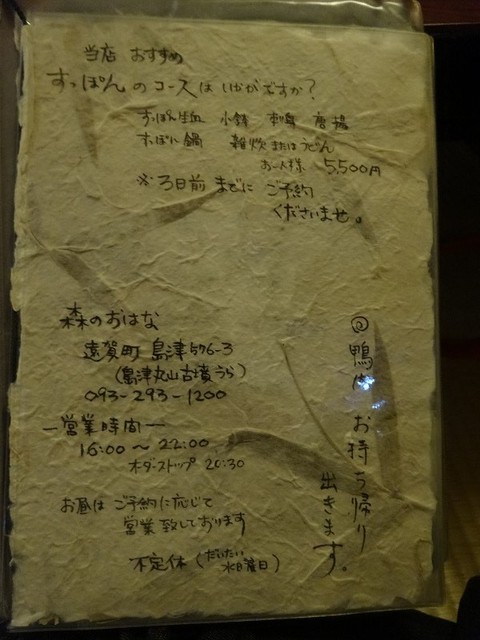 当店 おすすめ
すっぽんのコースはいかがですか?
すっぽん生血 小鉢 刺身 唐揚
すっぽん鍋 雑炊またはうどん
お一人様 5,500円
※3日前までに ご予約
くださいませ。
森のおはな
遠賀町 島津576-3
(島津丸山古墳うら)
093-293-1200
―営業時間―
16:00〜22:00
オーダーストップ 20:30
お昼は ご予約に応じて
営業致しております
不定休(だいたい
水曜日)
◎鴨 お持ち帰り
出きます。